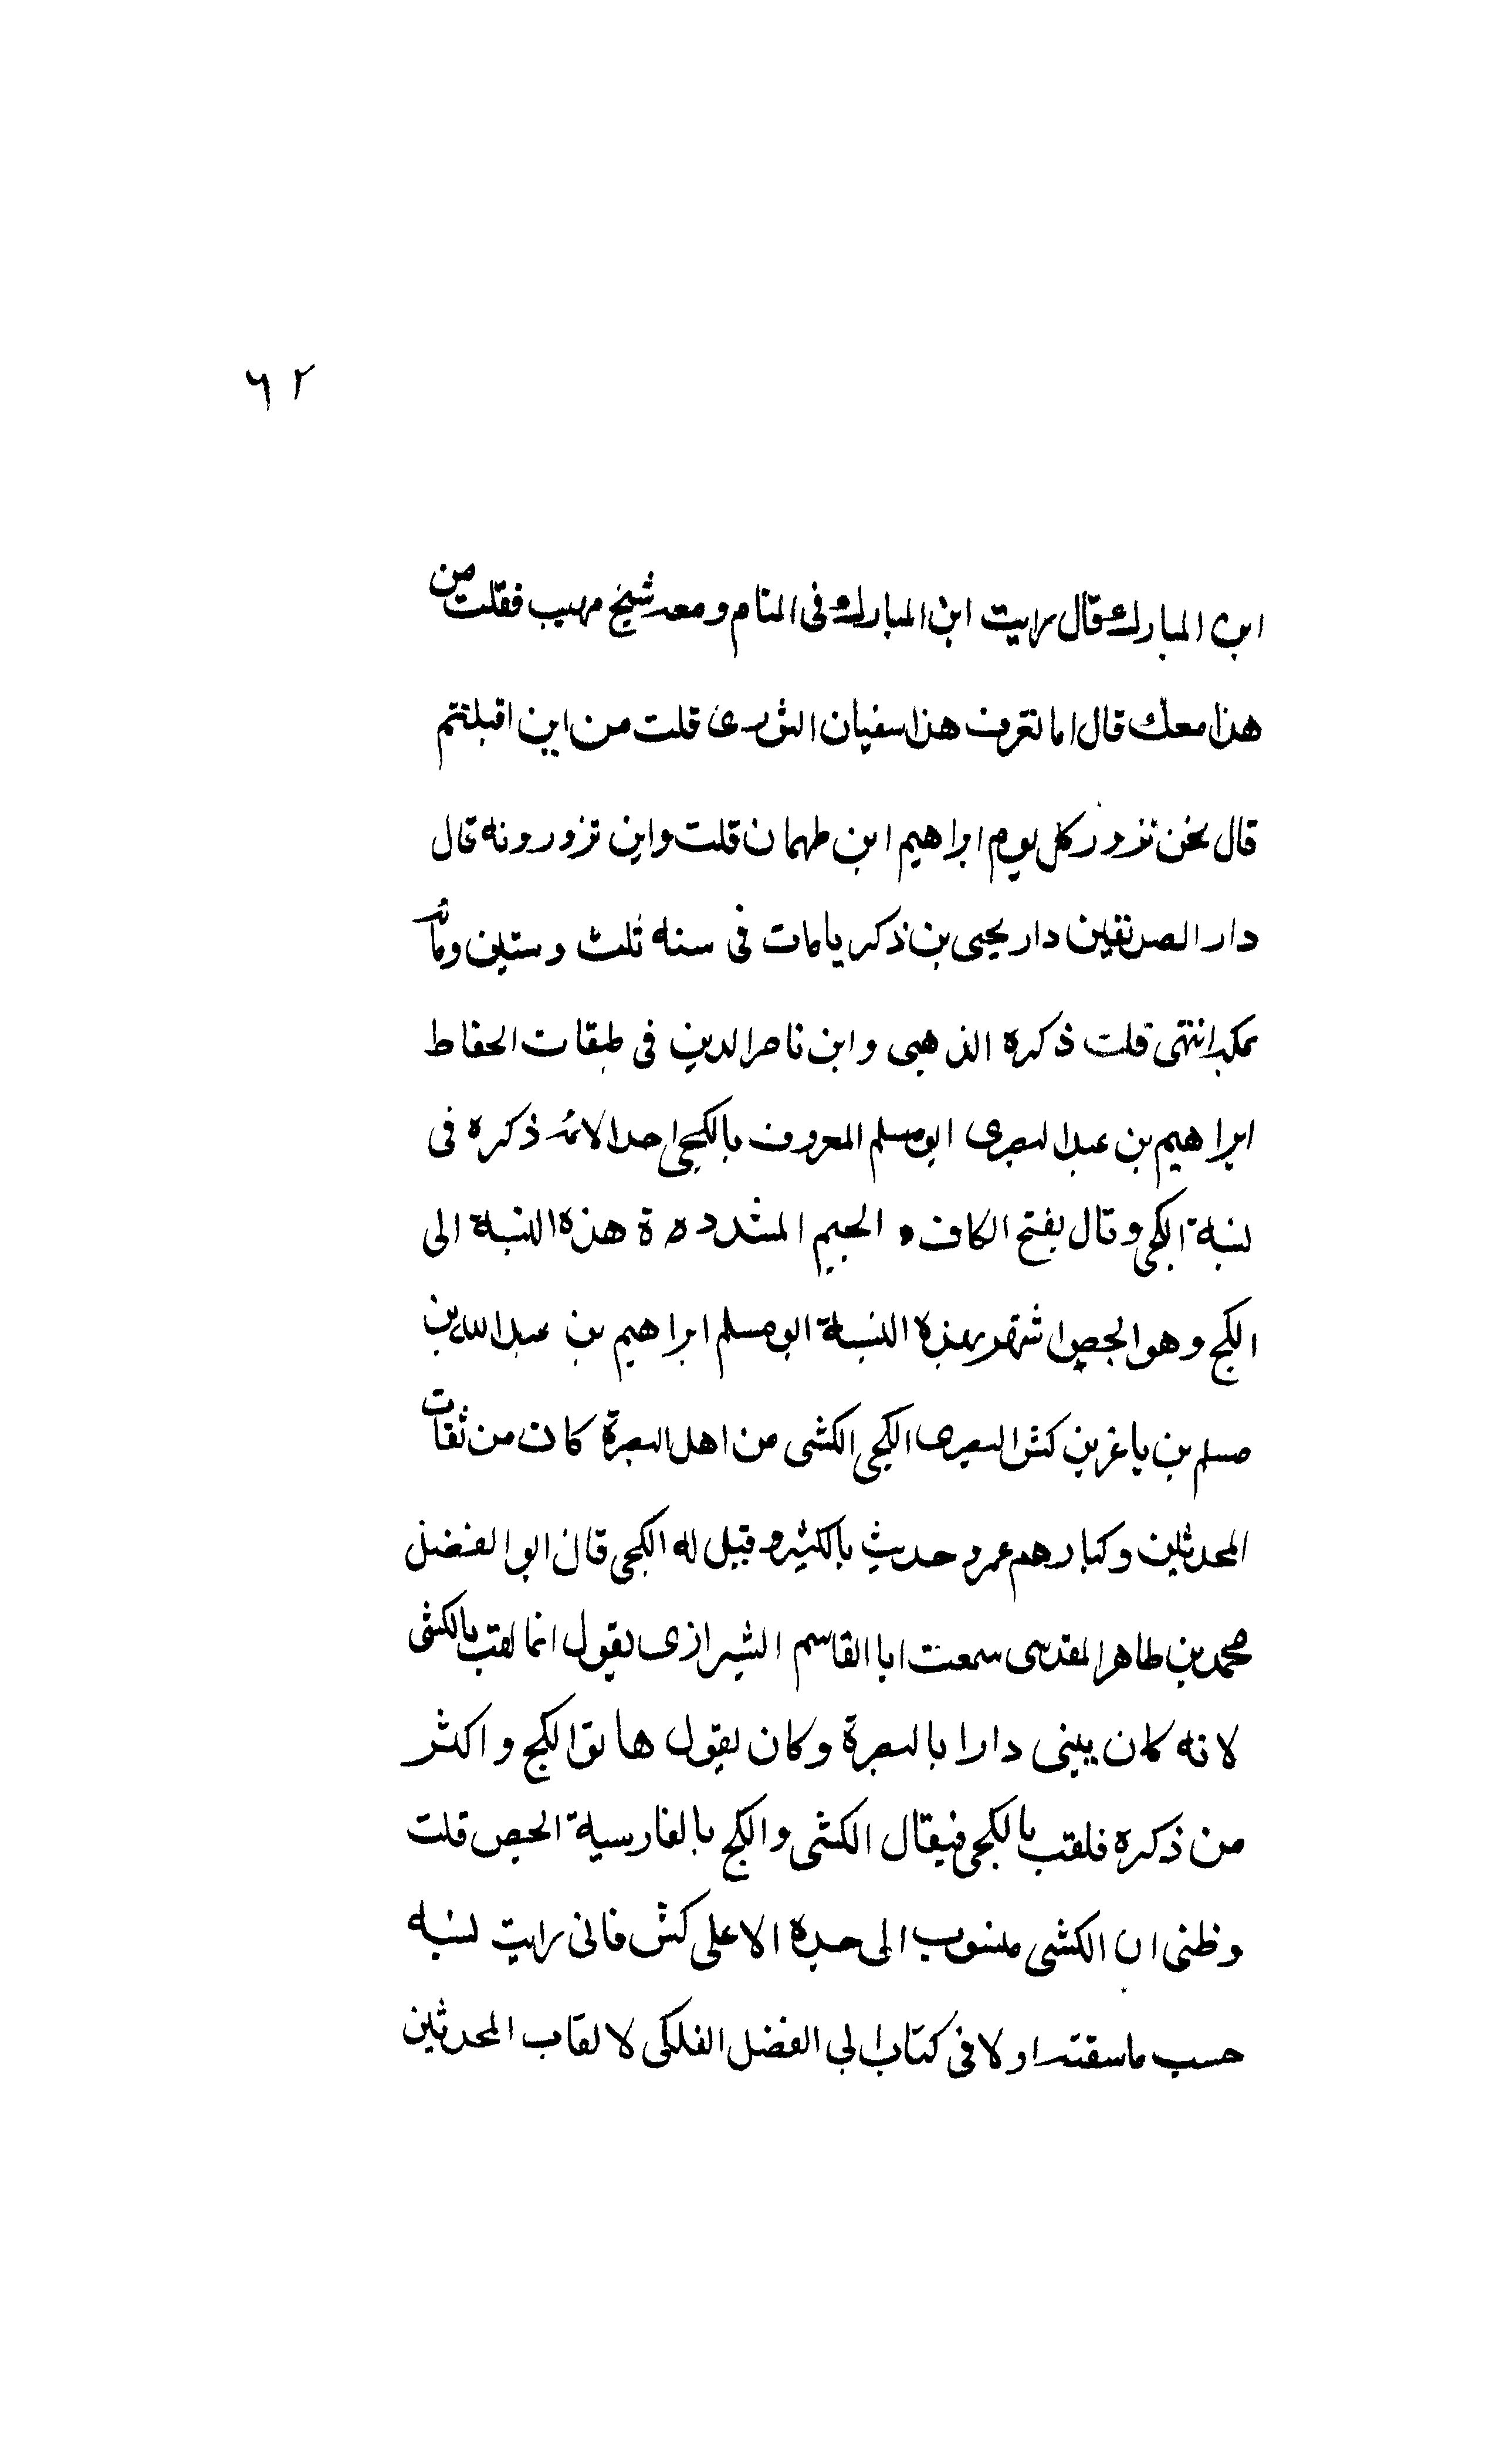 ٦٢
ابن المبارك قال رايت ابن المبارك فى المنام ومعه شيخ مهيب فقلت من
هذا معك قال اما تعرف هذا سفيان الثورى قلت من اين اقبلتم
قال نحن نزور كل يوم ابراهيم ابن طهمان قلت واين تزورونه قال
دار الصديقين دار يحيى بن زكريا مات فى سنه ثلث وستين ومائة
بمكه انتهى قلت ذكره الذهبى وابن ناصر الدين فى طبقات الحفاط
ابراهيم بن عبد البصرى ابو مسلم المعروف بالكجى احد الائمه ذكره فى
نسبة الكجى وقال بفتح الكاف و الجيم المشدده ة هذه النسبة الى
الكج وهو الجص اشتهر بهذه النسبة ابو مسلم ابراهيم بن عبد الله بن
مسلم بن ياغر بن كش البصرى الكجى الكشى من اهل البصرة كان من ثقات
المحدثين وكبارهم عمر و حديث بالكثير و قيل له الكجى قال ابو الفضل
محمد بن طاهر المقدسى سمعت ابا القاسم الشيرازى يقول انما لقب بالكشى
لانه كان يبنى دارا بالبصرة وكان يقول هاتوا الكج و اكثر
من ذكره فلقب بالكجى فيقال الكشى والكج بالفارسية الجص قلت
وظنى ان الكشى منسوب الى جده الاعلى كش فانى رايت نسبه
حسب ما سقته اولا فى كتاب ابى الفضل الفلكى لالقاب المحدثين